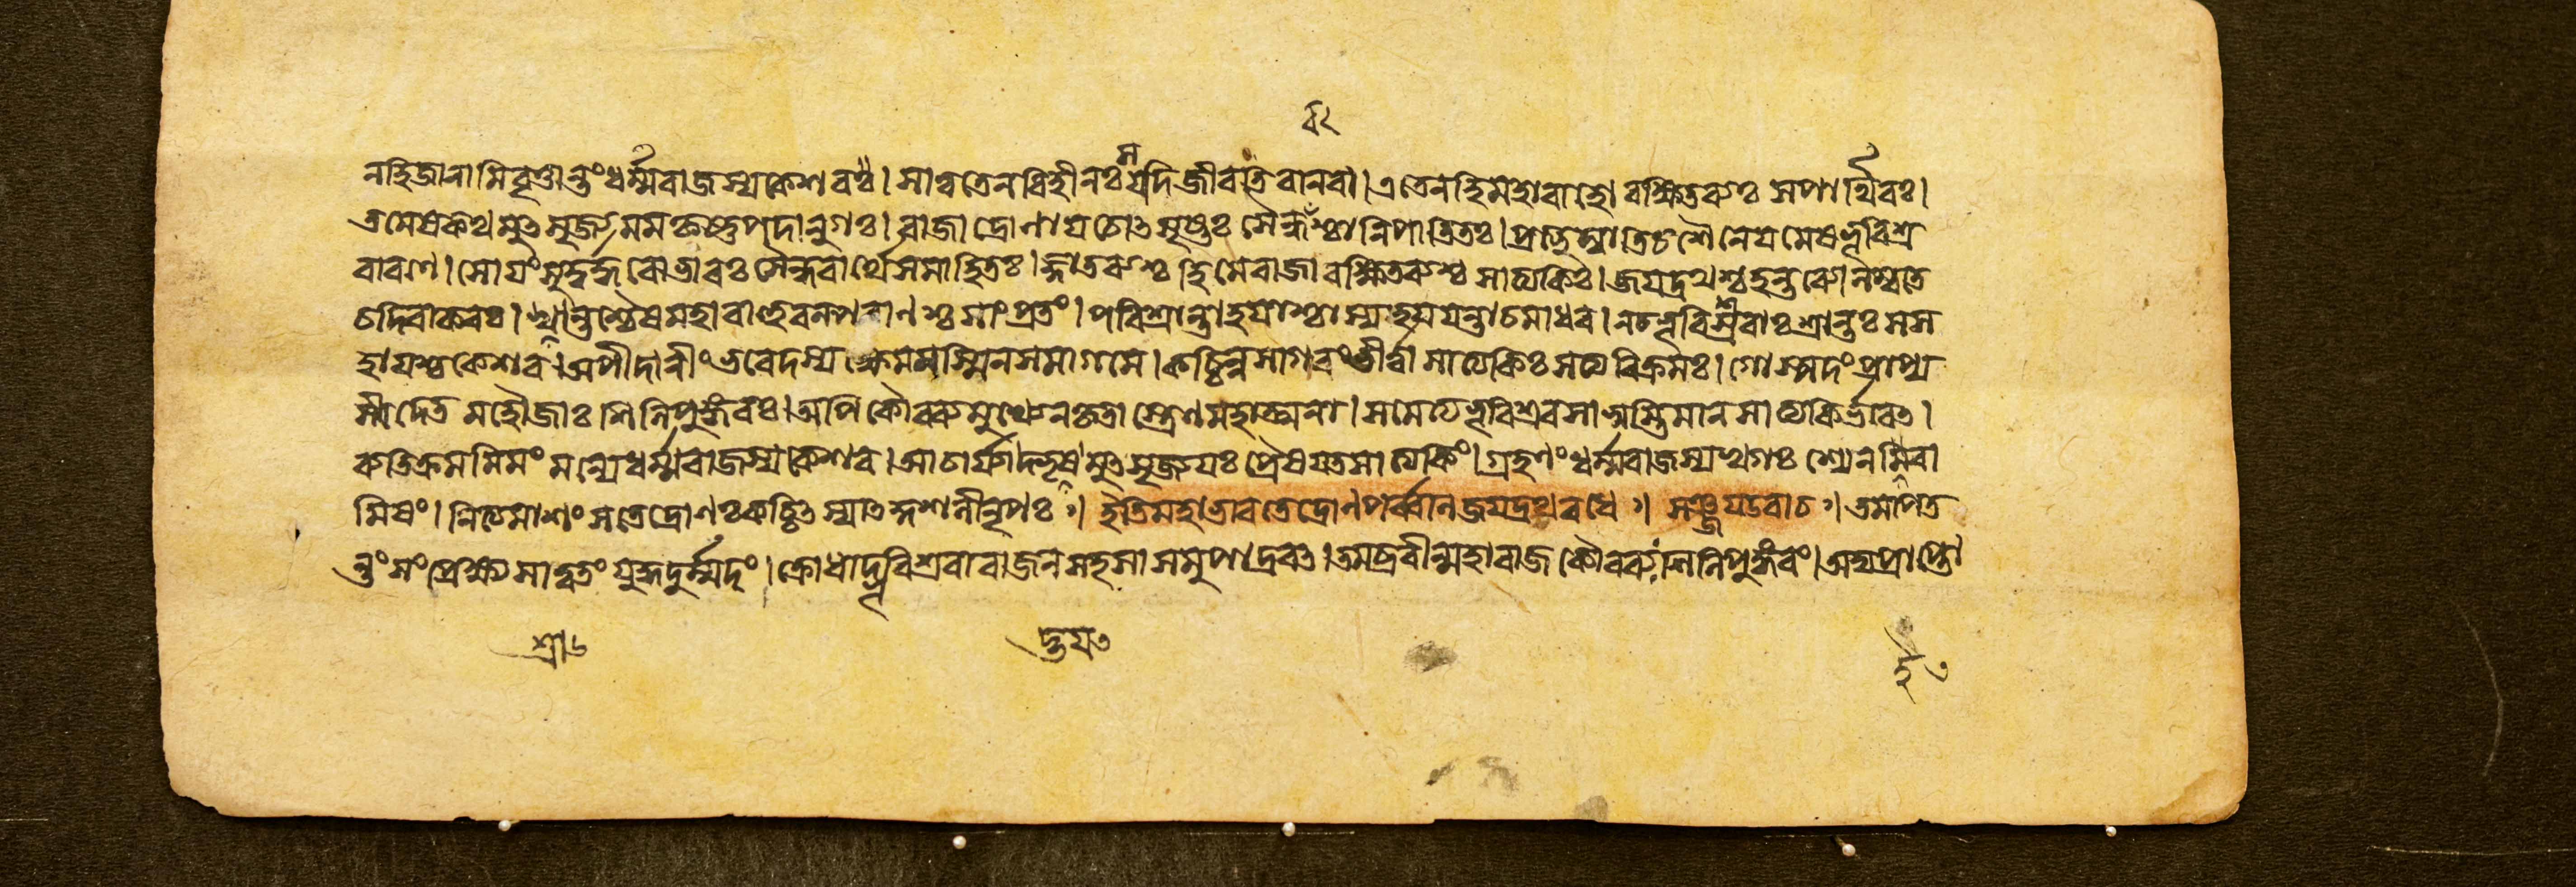 নহিজানামিবৃত্তান্তংধর্ম্মরাজস্যকেশবঃ। সাত্বতেনবিহীনঃসযদিজীবতিবানবা। এতেনহিমহাবাহো রক্ষিতব্যঃ সপার্থিবঃ।
তমেষকথমুৎসৃজ্যমমকৃষ্ণপদানুগঃ। রাজা দ্রোণায়চোৎসৃষ্টঃ সৈন্ধবশ্চানিপাতিতঃ। প্রত্যুদ্যাতিচশৈনেয়মেষভূরিশ্র
বারণে। সোয়ংগুরুতরোভারঃ সৈন্ধবার্থেসমাহিতঃ। জ্ঞাতব্যশ্চ হিমেরাজা রক্ষিতব্যশ্চ সাত্যকিঃ। জয়দ্রথশ্চহন্তব্যোলম্বতে
চদিবাকরঃ। শ্রান্তশ্চৈষমহাবাহুরল্পপ্রাণশ্চসাংপ্রতং। পরিশ্রান্তাহয়াশ্চাস্যহয়যন্তাচমাধব। নচভূরিশ্রবাঃশ্রান্তঃসস
হায়শ্চকেশব। অপীদানীংভবেদস্যক্ষেমমস্মিনসমাগমে। কচ্চিন্নসাগরংতীর্ত্বাসাত্যকিঃসত্যবিক্রমঃ। গোষ্পদংপ্রাপ্য
সীদেত মহৌজাঃ শিনিপুঙ্গবঃ। অপি কৌরবমুখ্যেনকৃতাস্ত্রেণমহাত্মনা। সমেত্যভূরিশ্রবসাস্বস্তিমানসাত্যকির্ভবেৎ।
ব্যতিক্রমমিমংমন্যেধর্ম্মরাজস্যকেশব। আচার্য্যাদ্ভয়মুৎসৃজ্যযঃ প্রেষয়তসাত্যকিং। গ্রহণংধর্ম্মরাজস্যখগঃ শ্যেনমিবা
মিষং। নিত্যমাশংসতেদ্রোণঃকচ্চিৎস্যাৎকুশলীনৃপঃ॥ ইতিমহাভারতেদ্রোনপর্ব্বনিজয়দ্রথবধে॥ সঞ্জয়উবাচ॥ তমাপত
ন্তংসংপ্রেক্ষ্যসাত্বতংযুদ্ধদুর্ম্মদং। ক্রোধাদ্ভূরিশ্রবারাজনসহসাসমুপাদ্রবৎ। তমব্রবীন্মহারাজকৌরব্যঃশিনিপুঙ্গবং। অদ্যপ্রাপ্তো